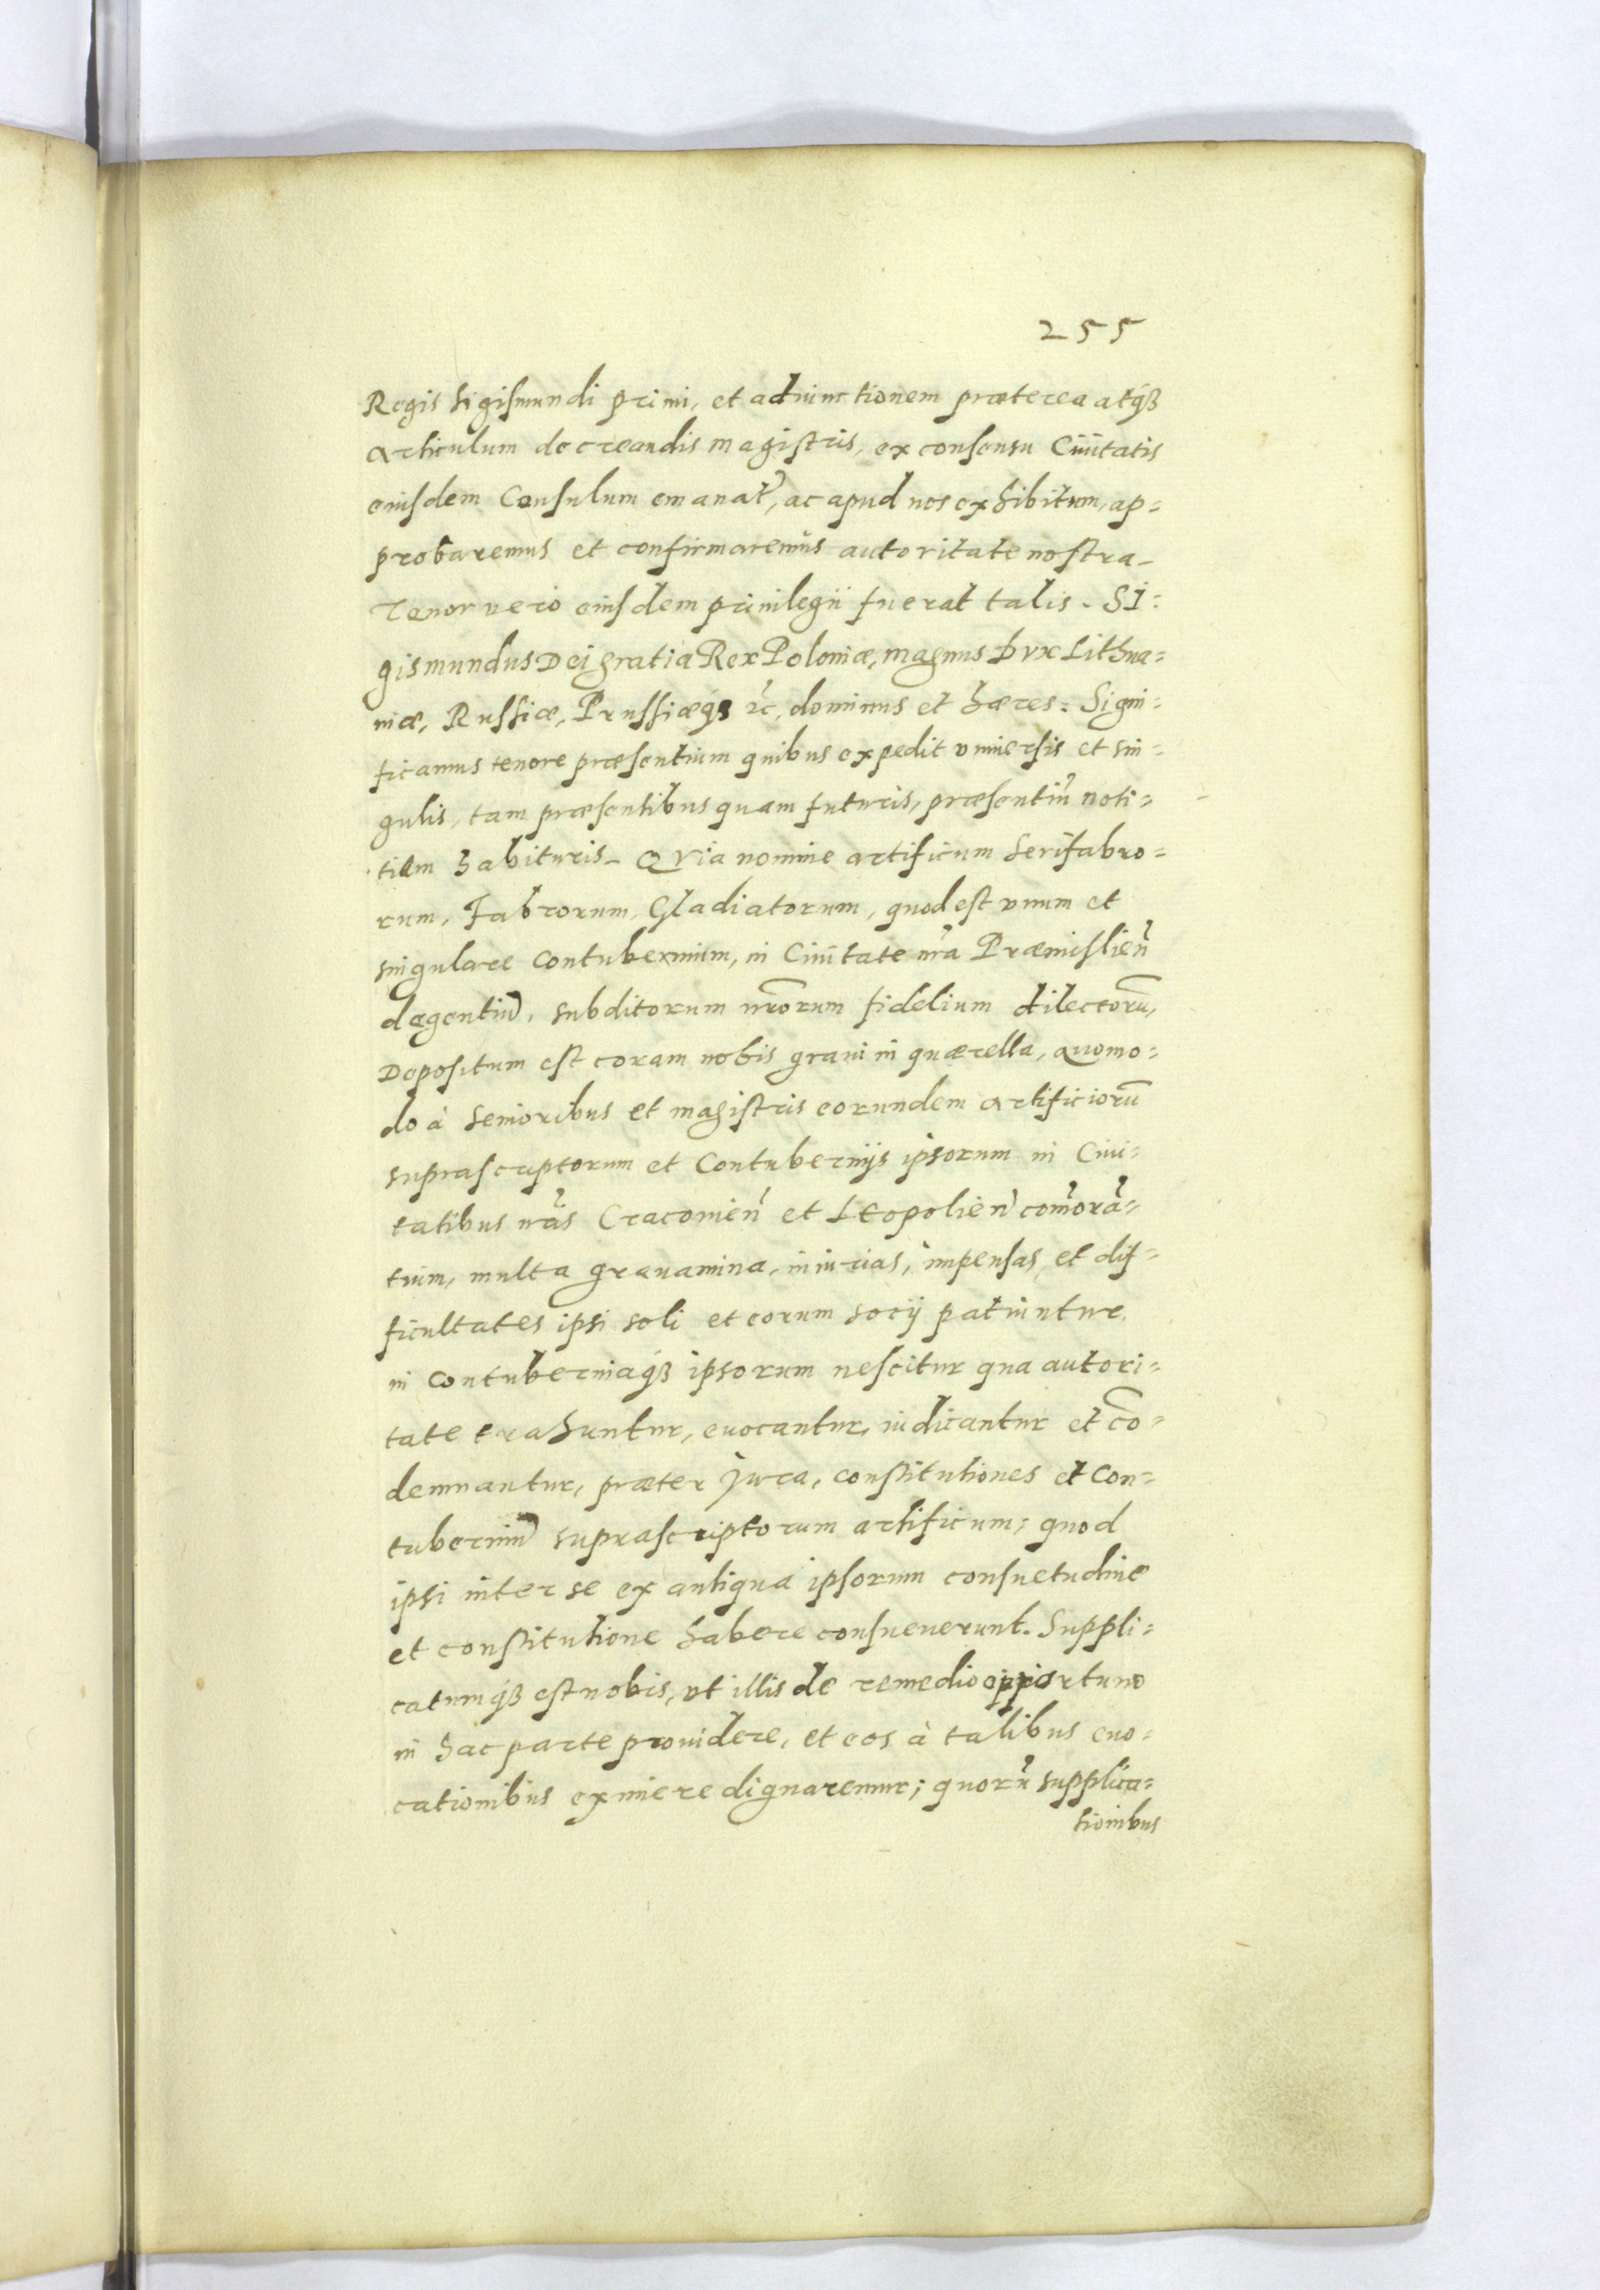 255
Regis Sigismundi primi, et adiunctionem præterea atq́ꝫ
articulum de creandis magistris, ex consensu Ciuitatis
eiusdem Consulum emanat̃, ac apud nos exhibitum, ap=
probaremus et confirmaremus autoritate nostra_
Tenor vero eiusdem priuilegii fuerat talis. SI=
gismundus Dei gratia Rex Poloniæ, magnus Dvx Lithua=
niæ, Russiæ, Prussiæq́ꝫ ꝛc̃, dominus et hæres. Signi=
ficamus tenore præsentium quibus expedit vniuersis et sin=
gulis, tam præsentibus quam futuris, præsentiũ noti=
tiam habituris_ Qvia nomine artificum Serifabro=
rum, Fabrorum, Gladiatorum, quod est vnum et
singulare Contubernium, in Ciuitate nr̃a Præmislien̄
degentiũ, subditorum nr̃orum fidelium dilectorũ,
Depositum est coram nobis graui in quærella, quomo=
do à Senioribus et magistris eorundem artificiorũ
suprascriptorum et Contubernijs ipsorum in Ciui=
tatibus nr̃is Cracouien̄ et Leopolien̄ com̃orã=
tium, multa grauamina, iniurias, impensas et dif=
ficultates ipsi soli et eorum socij patiuntur,
in Contuberniaq́ꝫ ipsorum nescitur qua autori=
tate trahuntur, euocantur, iudicantur et cõ=
demnantur, præter Jura, constitutiones et Con=
tuberniũ suprascriptorum artificum; quod
ipsi inter se ex antiqua ipsorum consuetudine
et constitutione habere consueuerunt. Suppli=
catumq́ꝫ est nobis, vt illis de remedio opportuno
in hac parte prouidere, et eos à talibus euo=
cationibus eximere dignaremur; quorũ supplica=
tionibus